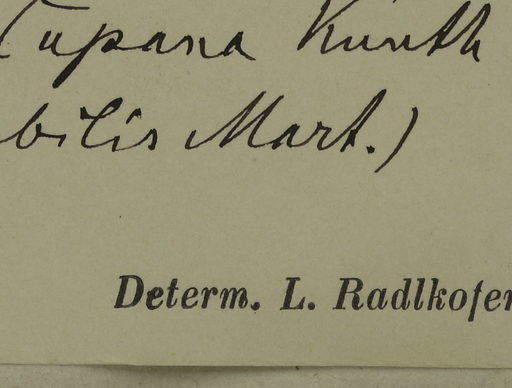 Cupana Kunth
bilis Mart.)
Determ. L. Radlkofer